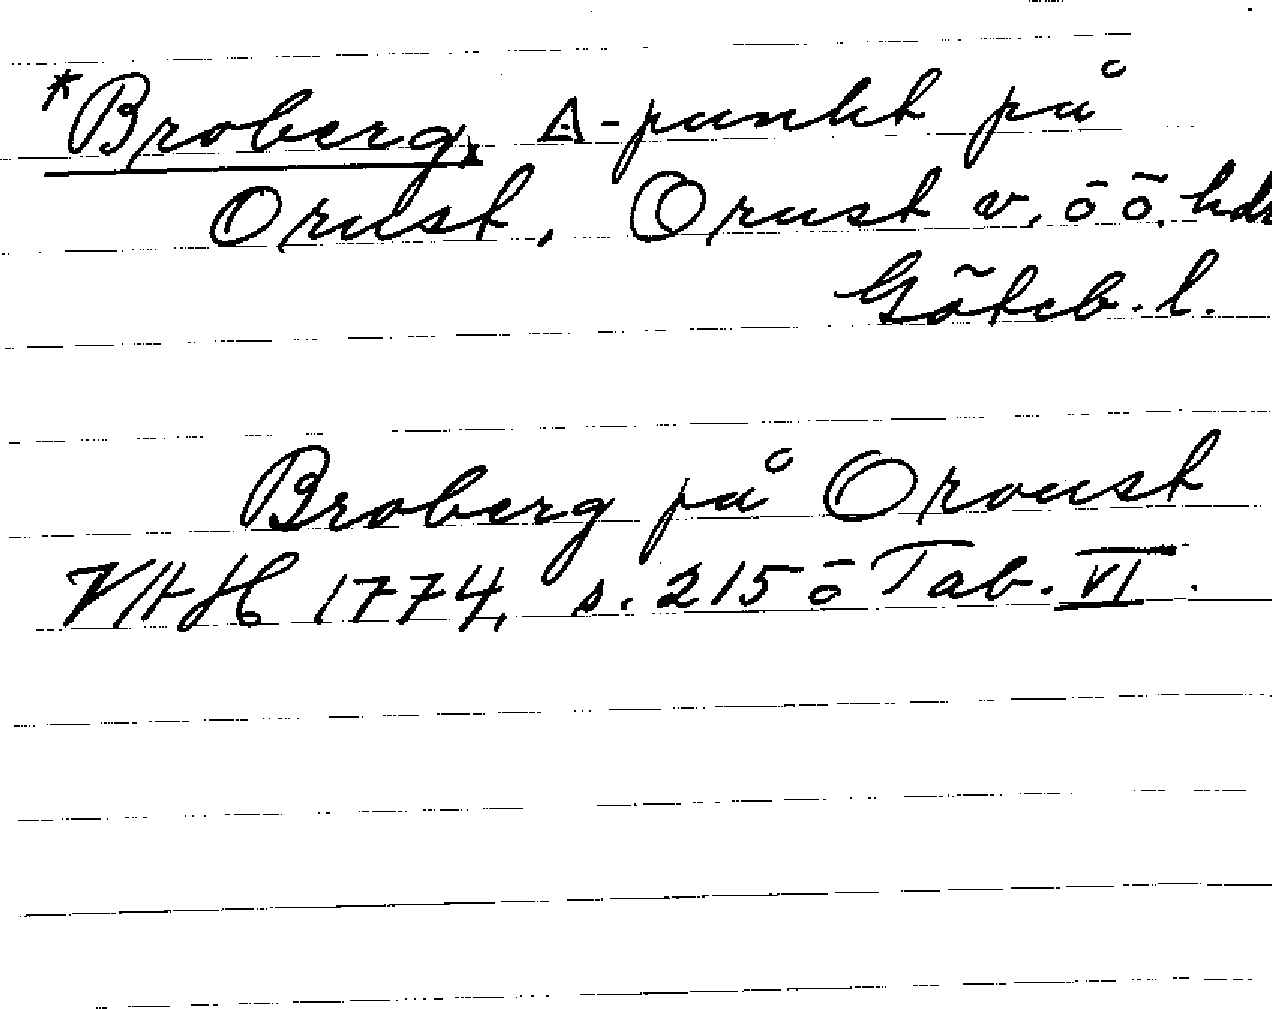 *Broberg, Δ-punkt på
Orust, Orust v. o ö. hds
Göteb. l.
Broberg på Oroust
VAH 1774, s. 215 o Tab. VI.